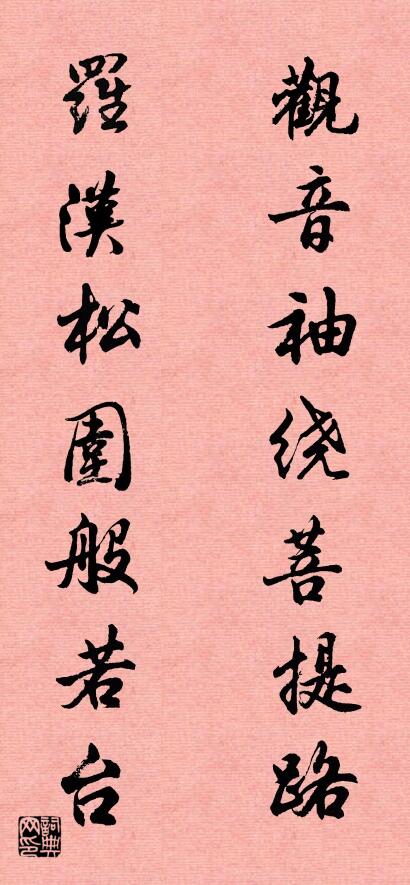 觀音袖绕菩提路
羅漢松圍般若台
詞典网印